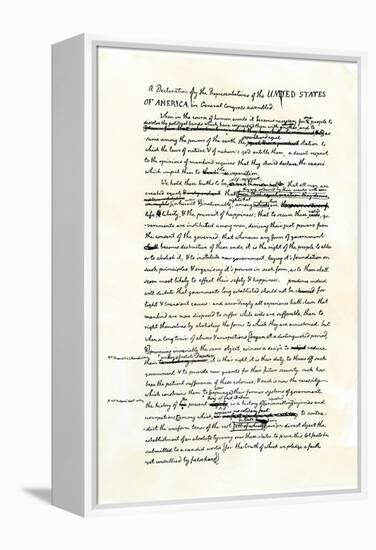 A Declaration by the Representatives of the UNITED STATES
OF AMERICA, in General Congress assembled.
When in the course of human events it becomes necessary for one people to
dissolve the political bands which have connected them with another, and to
assume among the powers of the earth the separate and equal station to
which the laws of nature & of nature's god entitle them, a decent respect
to the opinions of mankind requires that they should declare the causes
which impel them to the separation.
We hold these truths to be self-evident; that all men are
created equal
life, & liberty, & the pursuit of happiness; that to secure these rights, go-
vernments are instituted among men, deriving their just powers from
the consent of the governed; that whenever any form of government
becomes destructive of these ends, it is the right of the people to alter
or to abolish it, & to institute new government, laying it's foundation on
such principles, & organising it's powers in such form, as to them shall
seem most likely to effect their safety & happiness. prudence indeed
will dictate that governments long established should not be changed for
light & transient causes: and accordingly all experience hath shewn that
mankind are more disposed to suffer while evils are sufferable, than to
right themselves by abolishing the forms to which they are accustomed. but
when a long train of abuses & usurpations [begun at a distinguished period,
& pursuing invariably the same object, evinces a design to reduce
them it is their right, it is their duty, to throw off such
government & to provide new guards for their future security. such has
been the patient sufferance of these colonies; & such is now the necessity
which constrains them to [expunge] their former systems of government.
the history of present is a history of injuries and
usurpations, [among which,
to contra-
dict the uniform tenor of the rest, in direct object the
establishment of an absolute tyranny over these states. to prove this, let facts be
submitted to a candid world, [for the truth of which we pledge a faith
yet unsullied by falsehood]